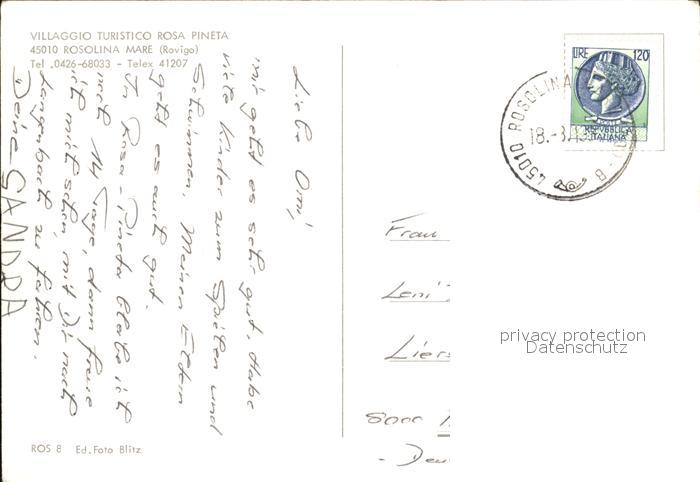 VILLAGGIO TURISTICO ROSA PINETA
45010 ROSOLINA MARE (Rovigo)
Tel .0426-68033 - Telex 41207
Liebe Omi!
mir geht es sehr gut. Habe
viele Kinder zum Spielen und
Schwimmen. Meinen Eltern
geht es auch gut.
In Rosa-Pineta bleibe ich
noch 14 Tage, dann freue
ich mich schon, mit Dir nach
Langenbach zu fahren.
Deine SANDRA
ROS 8 Ed.Foto Blitz
LIRE 120
REPVBBLICA
ITALIANA
45010 ROSOLINA
18.-8
B
Frau
Leni
Liers
8000
- Deu
privacy protection
Datenschutz